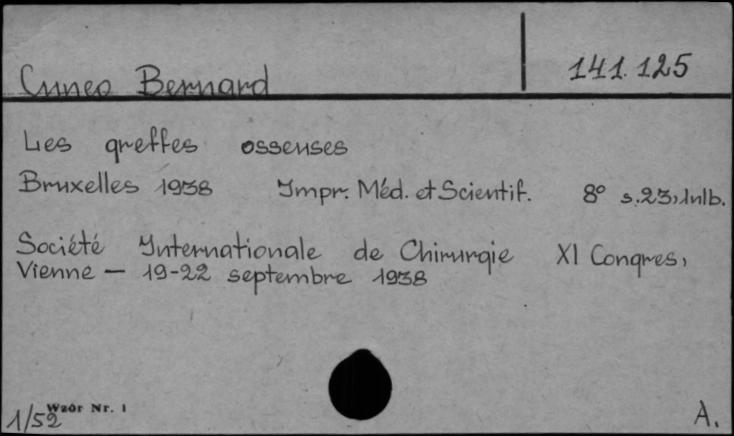 Cuneo Bernard 141.125
Les greffes osseuses
Bruxelles 1938 Impr. Méd. et Scientif. 8° s.23,1nlb.
Société Internationale de Chirurgie XI Congres,
Vienne — 19-22 septembre 1938
Wzór Nr. 1
1/52 A.